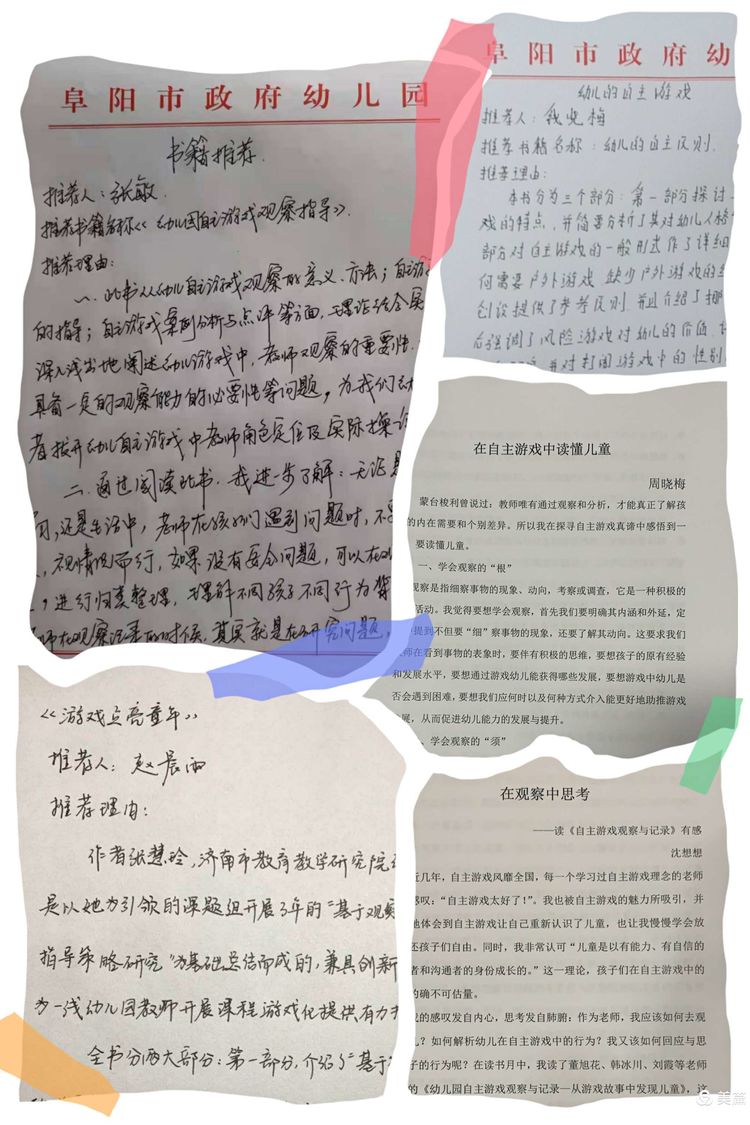 阜阳市政府幼儿园
书籍推荐.
推荐人：张敏.
推荐书籍名称《幼儿园自主游戏观察指导》.
推荐理由：
一、此书从幼儿自主游戏观察的意义、方法；自主游
的指导；自主游戏案例分析与点评等方面，理论结合实
深入浅出地阐述幼儿游戏中，教师观察的重要性.
具备一定的观察能力的必要性等问题，为我们
者拨开幼儿自主游戏中教师角色定位及实际操
二、通过阅读此书，我进步了解：无论是
习，还是生活中，老师在孩子们遇到问题时，不要
，视情况而行，如果没有安全问题，可以在
，进行归类整理，理解不同孩子不同行为背
师在观察记录的时候，其实就是在研究问题，
阜阳市政府幼
幼儿的自主游戏
推荐人：钱晓梅
推荐书籍名称：幼儿的自主
推荐理由：
本书分为三个部分：第一部分探讨
戏的特点，并简要分析了其对幼儿人格
部分对自主游戏的一般形式作了详细
何需要户外游戏 缺少户外游戏的
创设提供了参考 并且介绍了
后强调了风险游戏对幼儿的价值，
并对打闹游戏中的性别
在自主游戏中读懂儿童
周晓梅
蒙台梭利曾说过：教师唯有通过观察和分析，才能真正了解孩
的内在需要和个别差异。所以我在探寻自主游戏真谛中感悟到一
要读懂儿童。
一、学会观察的“根”
观察是指细察事物的现象、动向，考察或调查，它是一种积极的
活动。我觉得要想学会观察，首先我们要明确其内涵和外延，定
提到不但要“细”察事物的现象，还要了解其动向。这要求我们
师在看到事物的表象时，要伴有积极的思维，要想孩子的原有经验
和发展水平，要想通过游戏幼儿能获得哪些发展，要想游戏中幼儿是
否会遇到困难，要想我们应何时以及何种方式介入能更好地助推游戏
展，从而促进幼儿能力的发展与提升。
、学会观察的“须”
《游戏点亮童年》
推荐人：赵晨雨
推荐理由：
作者张慧玲，济南市教育教学研究院
是以她为引领的课题组开展3年的“基于观察
指导策略研究”为基础总结而成的，兼具创新
为一线幼儿园教师开展课程游戏化提供有力
全书分两大部分：第一部分，介绍了“基于
在观察中思考
——读《自主游戏观察与记录》有感
沈想想
近几年，自主游戏风靡全国，每一个学习过自主游戏理念的老师
感叹：“自主游戏太好了！”。我也被自主游戏的魅力所吸引，并
地体会到自主游戏让自己重新认识了儿童，也让我慢慢学会放
还孩子们自由。同时，我非常认可“儿童是以有能力、有自信的
者和沟通者的身份成长的。”这一理论，孩子们在自主游戏中的
的确不可估量。
的感叹发自内心，思考发自肺腑：作为老师，我应该如何去观
儿？如何解析幼儿在自主游戏中的行为？我又该如何回应与思
子的行为呢？在读书月中，我读了董旭花、韩冰川、刘霞等老师
的《幼儿园自主游戏观察与记录—从游戏故事中发现儿童》，这
美篇